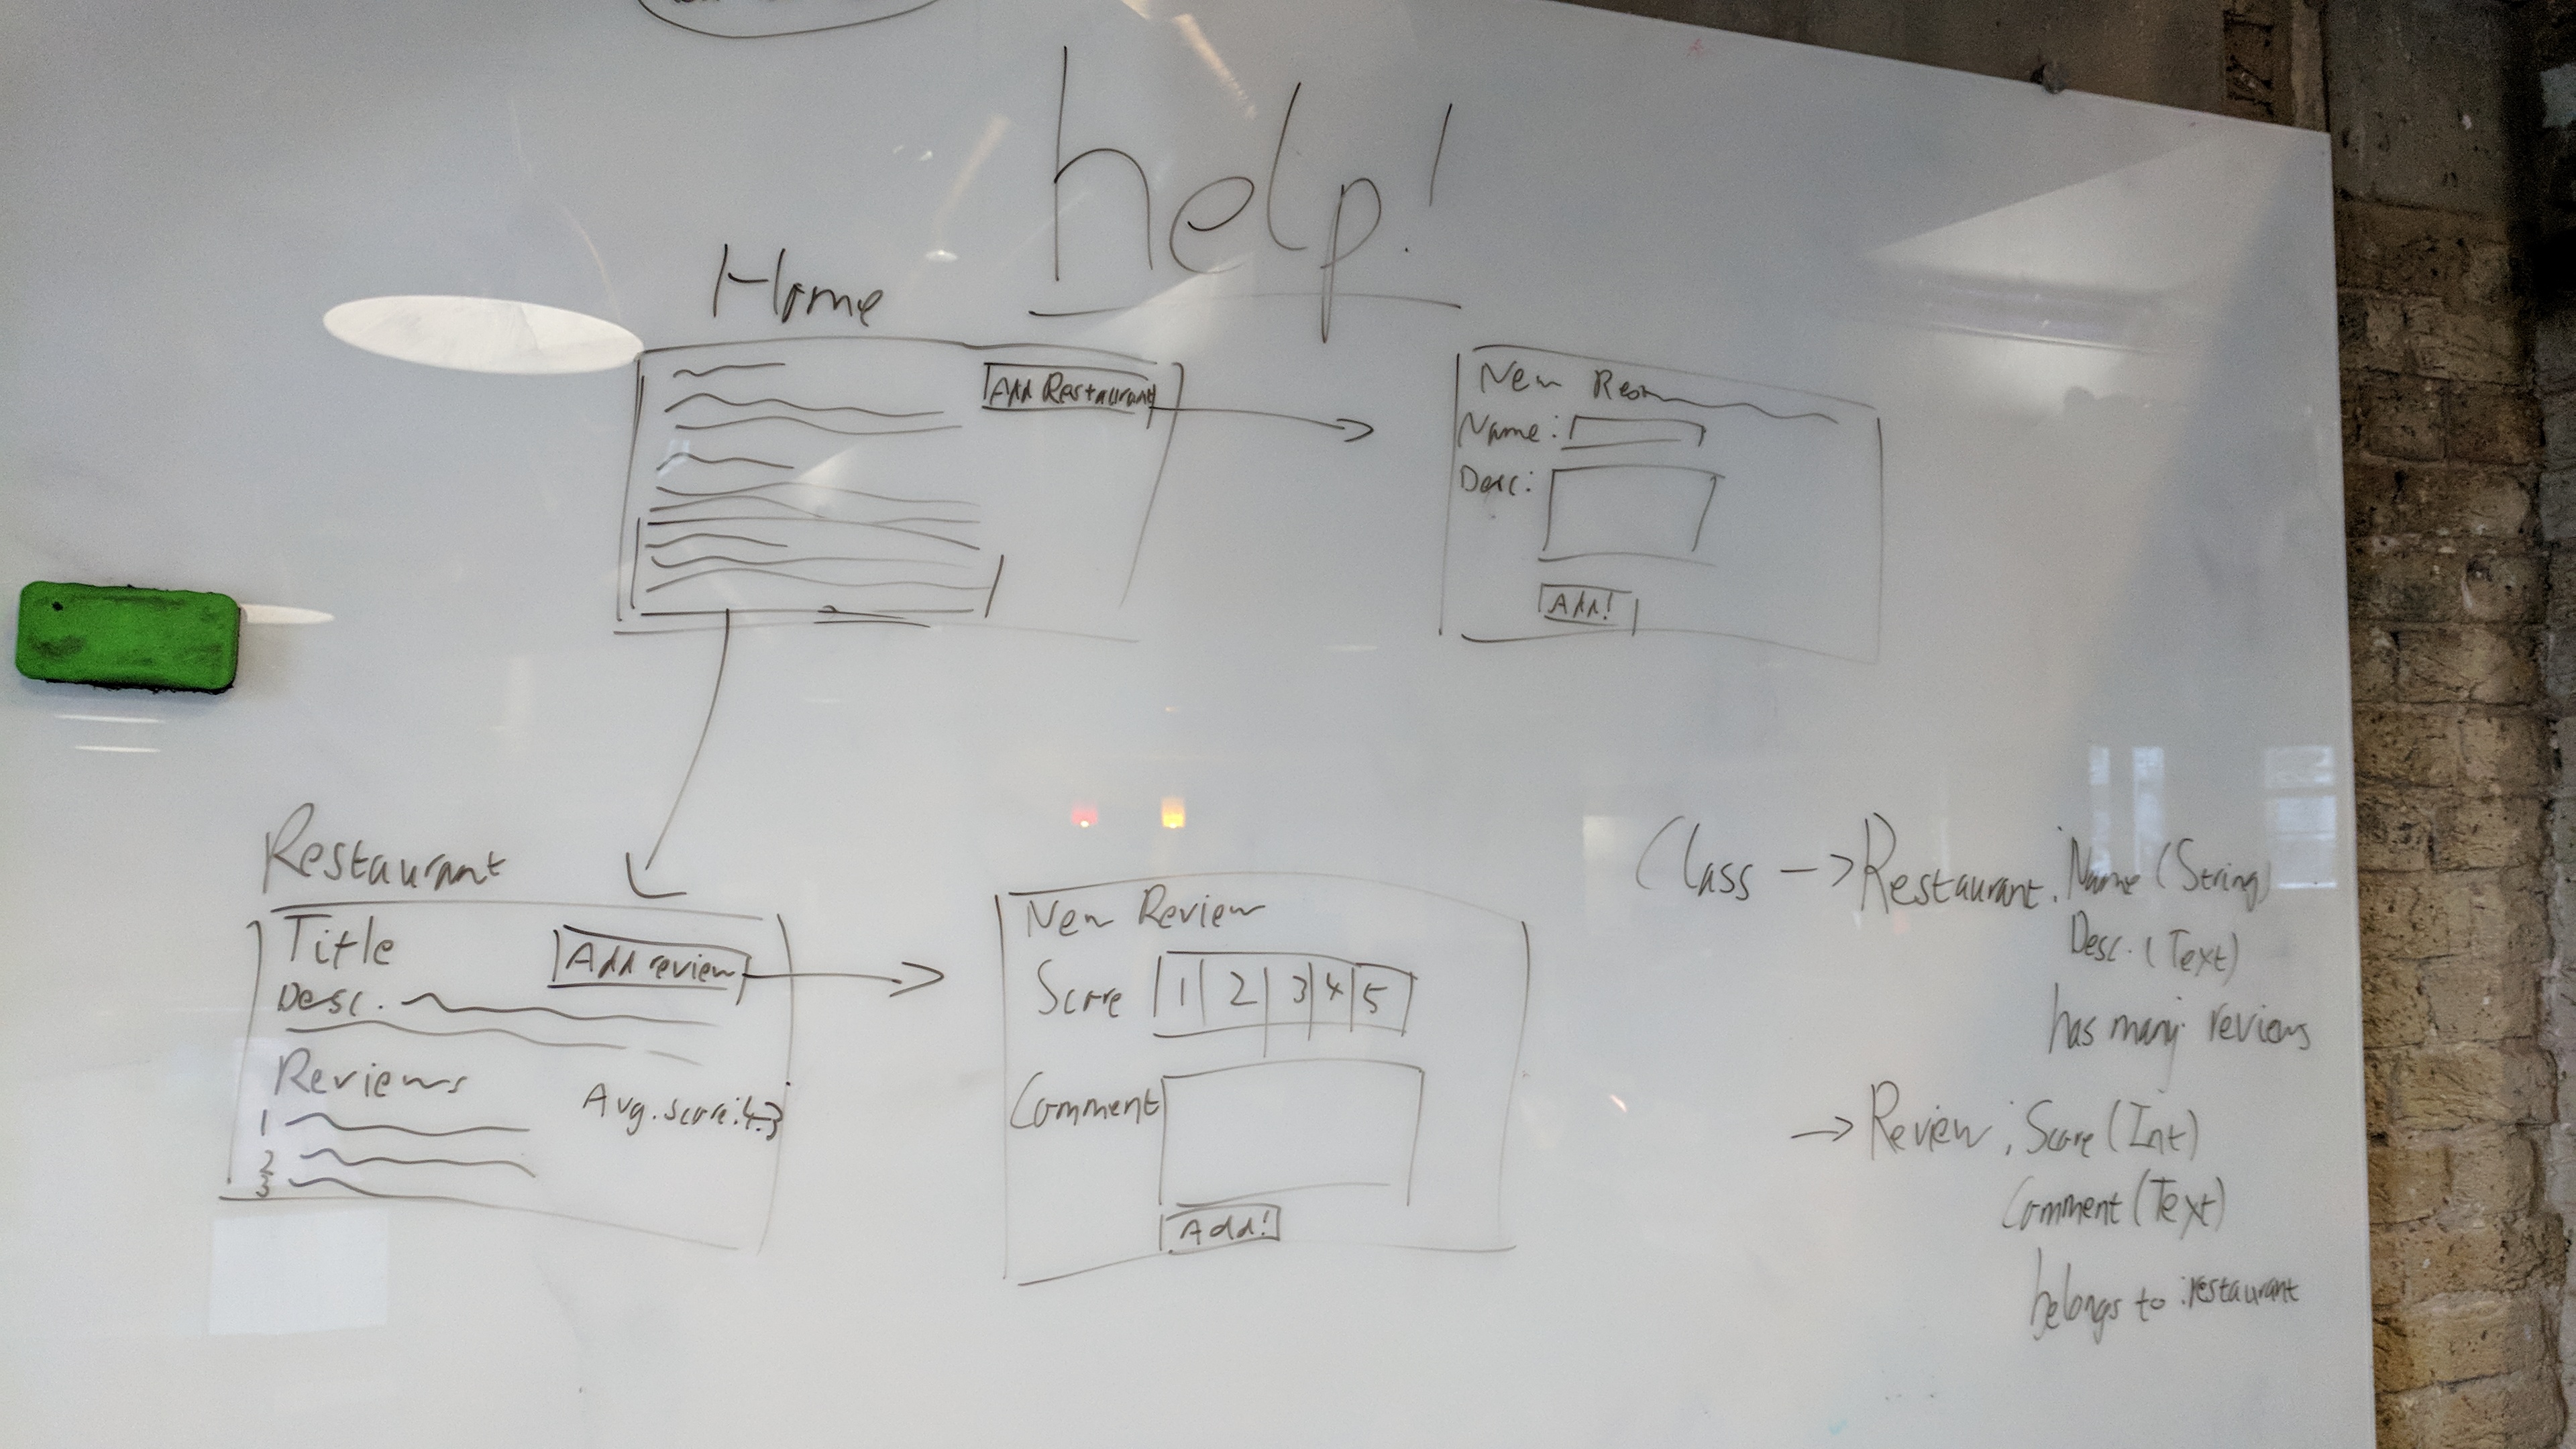 help!
Home
Add Restaurant
New Res
Name:
Desc:
Add!
Restaurant
Title
Add review
Desc.
Reviews
Avg. score: 4.3
1
2
3
New Review
Score 1 2 3 4 5
Comment
Add!
Class -> Restaurant. Name (String)
Desc. (Text)
has many reviews
-> Review: Score (Int)
Comment (Text)
belongs to :restaurant